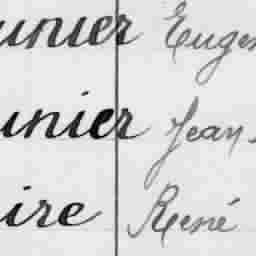 unier Eugen
unier Jean
ire René